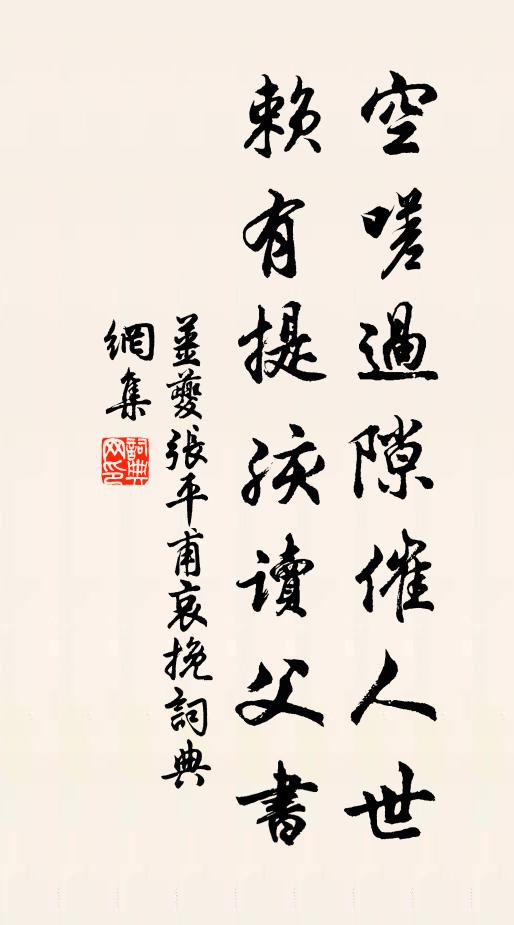 空嗟過隙催人世
賴有提孩讀父書
姜夔張平甫哀挽詞典
網集
詞典網印